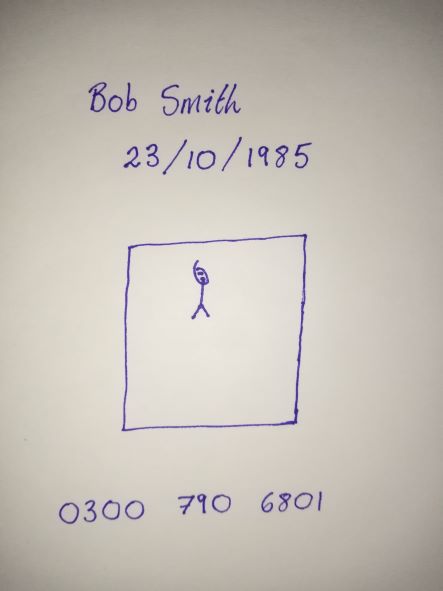 Bob Smith
23/10/1985
0300 790 6801